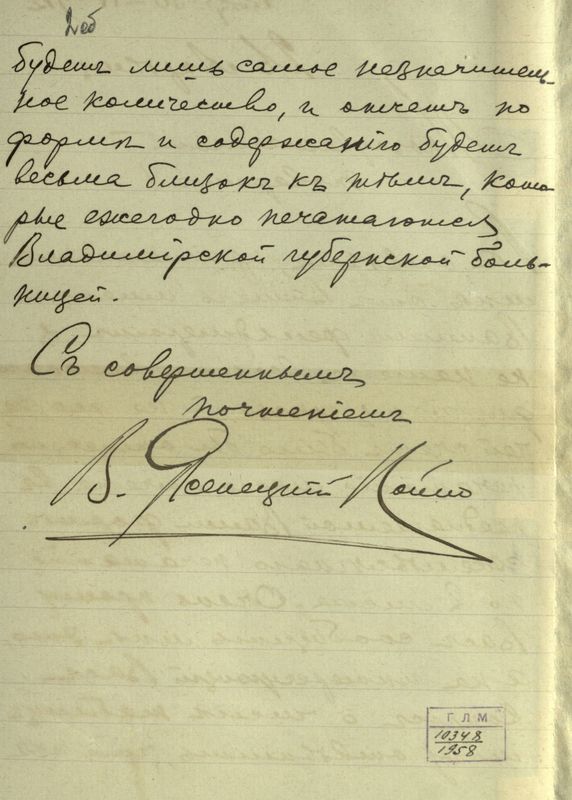 2об
будетъ лишь самое незначитель-
ное количество, и отчетъ по
формѣ и содержанію будетъ
весьма близокъ къ тѣмъ, кото
рые ежегодно печатаются
Владимірской губернской боль-
ницей.
Съ совершеннымъ
почтеніемъ
В. Ясенецкий Войно
ГЛМ
10348
1958